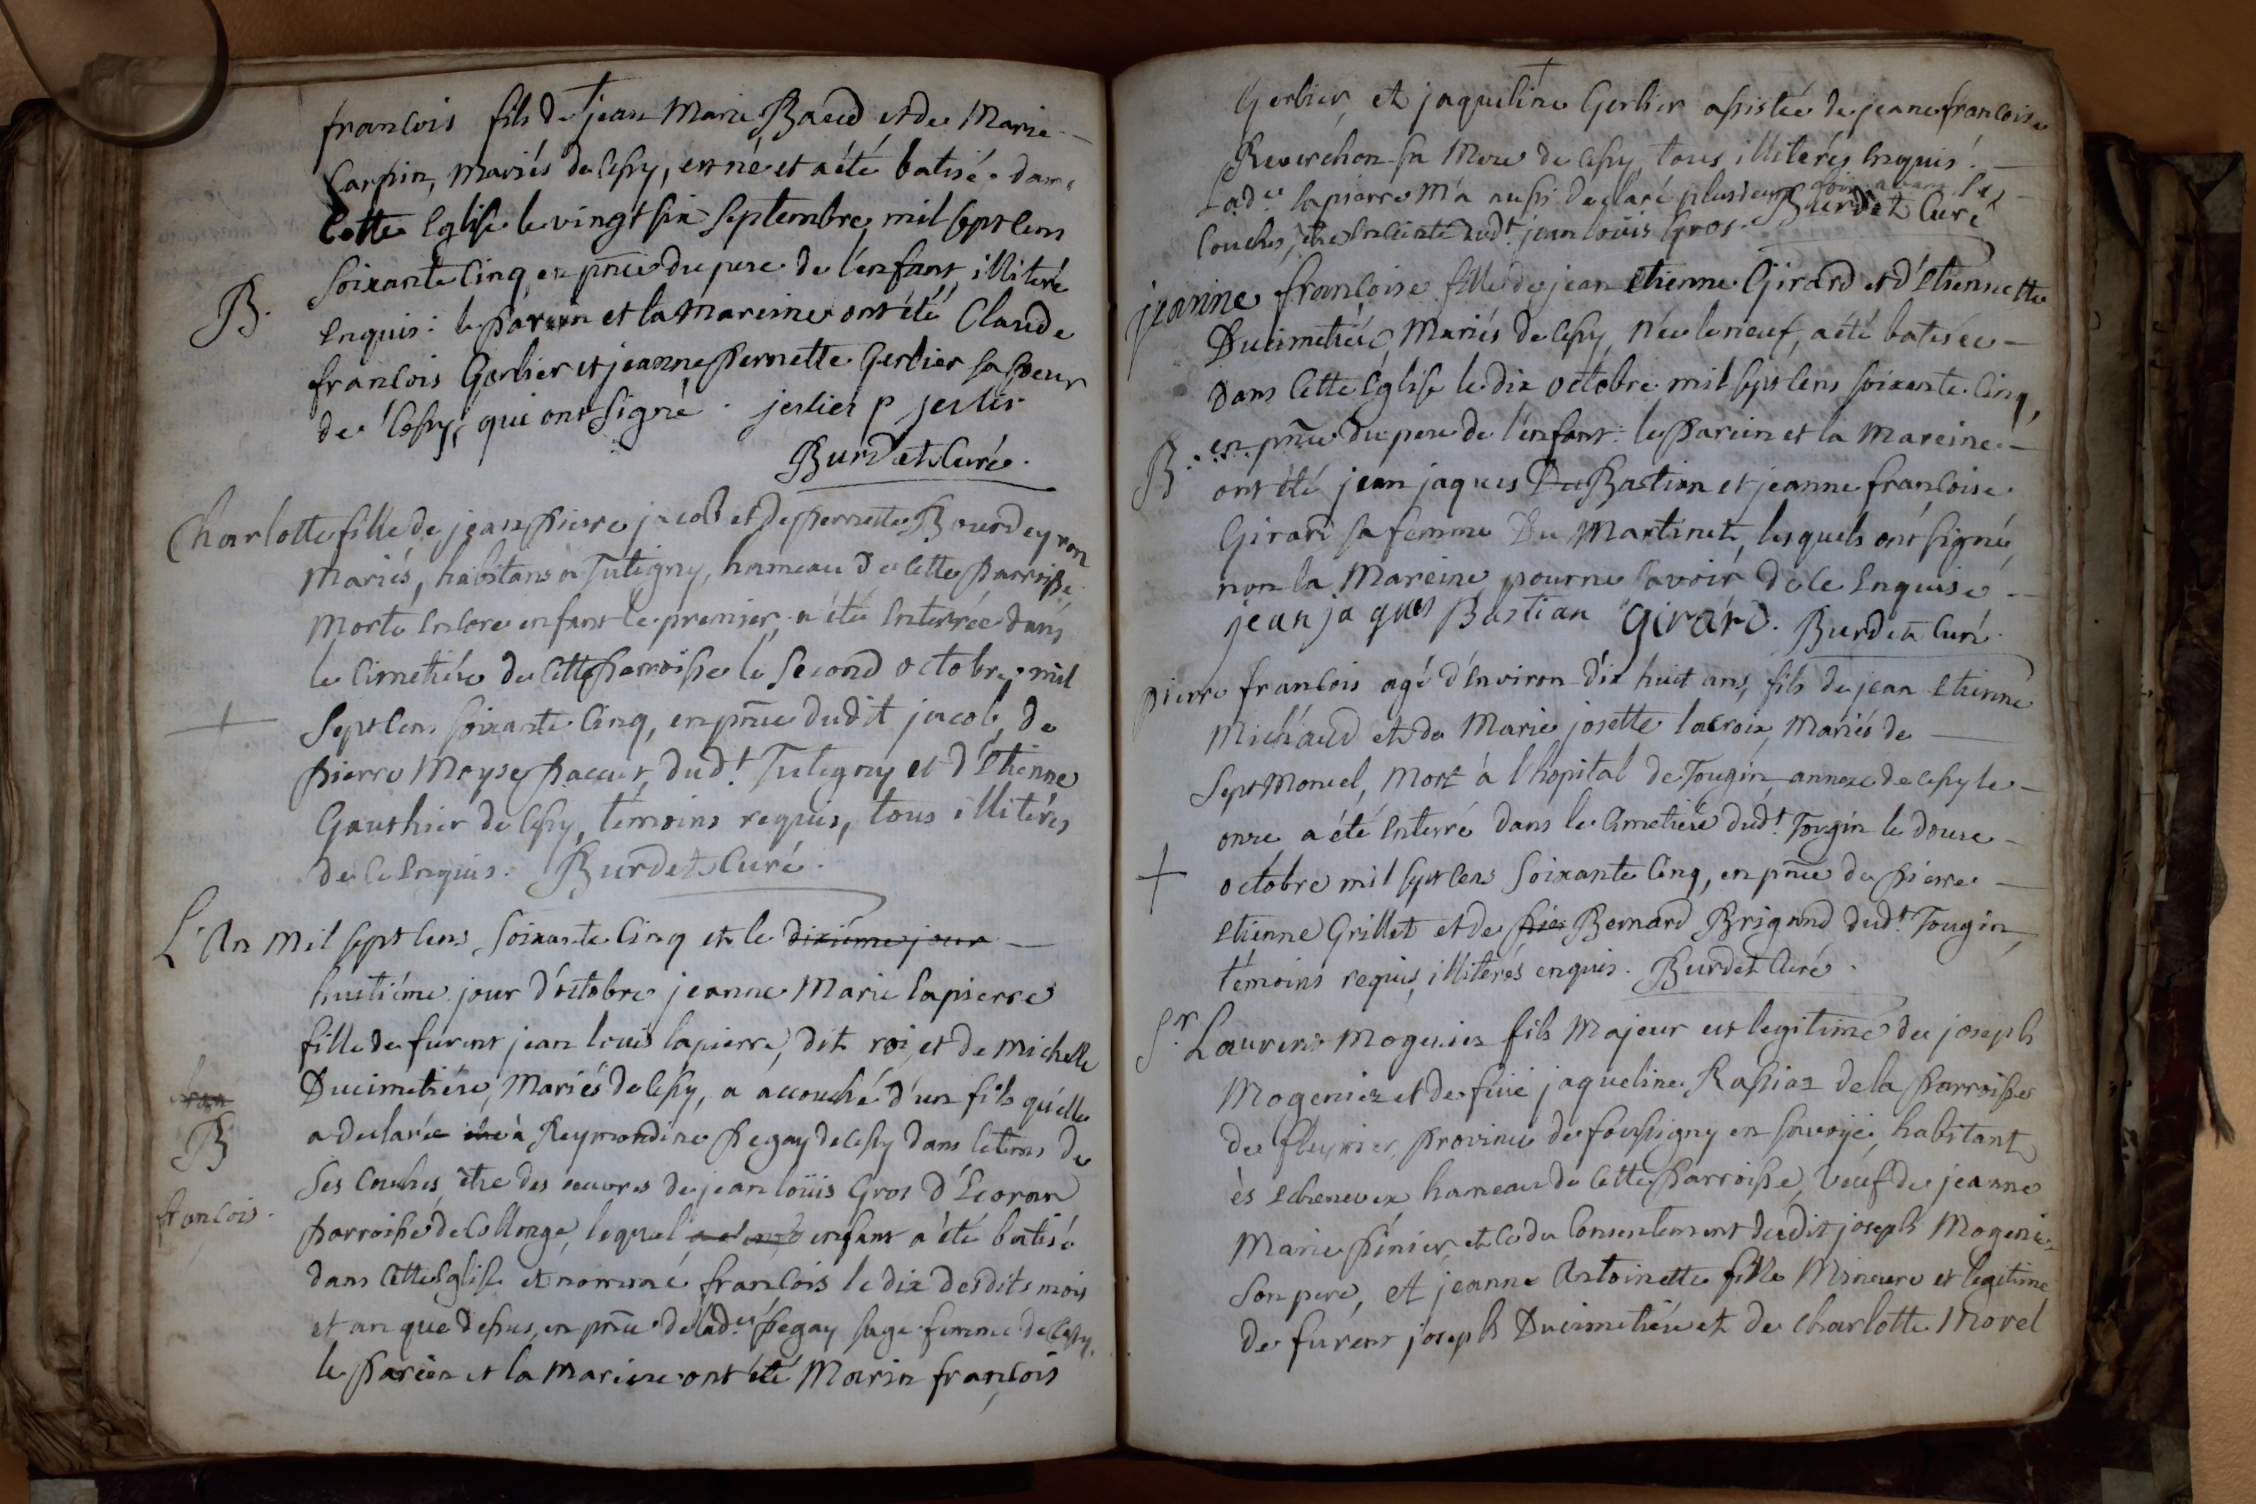 françois fils de jean Marie Baud et de Marie
Carpin, Mariés de Cessy, est né et a été batisé dans
Cette Eglise le vingt six septembre mil sept cens
soixante Cinq en pñce du pere de l'enfant, illiteré
B.
Enquis: le Parein et la Mareine ont été Claude
françois Gerlier et jeanne Pernette Gerlier sa soeur
de Cessy, qui ont signé. jerlier p jerlier
Burdet Curé.
Charlotte fille de jean Pierre jacob et de Pernette Bourdeyron
Mariés, habitans à Tutigny, hameau de Cette Parroisse
Morte Encore enfant le premier, a été Enterrée dans
le Cimetiére de Cette Parroisse le second octobre mil
sept cens soixante Cinq, en pñce dudit jacob, de
Pierre Moyse Paccut, dudt. Tutegny et d'Etienne
Gauthier de Cessy, témoins requis, tous illiterés
de Ce Enquis. Burdet Curé.
L'An mil sept cens soixante Cinq et le dixiéme jour
huitiéme jour d'octobre jeanne Marie Lapierre
fille de furent jean Louis Lapierre, dit roi, et de Michelle
Ducimetiére, Mariés de Cessy, a accouché d'un fils qu'elle
B
a declaré à Reymondine Pegay de Cessy dans le tems de
ses Couches être des oeuvres de jean loüis Gros d'Ecoran
françois.
Parroisse de Collonge, lequel enfant a été batisé
dans Cette Eglise et nommé françois le dix desdits mois
et an que dessus, en pñce de lade. Pegay sage femme de Cessy.
le Parein et la Mareine ont été Marin françois
Gerlier, et jaqueline Gerlier assistée de jeane françoise
Reverchon sa Mere de Cessy, tous illiterés Enquis.
Lade. Lapierre m'a aussi declaré plusieurs fois avant ses
Couches, être Enceinte dudt. jean louis Gros. Burdet Curé
jeanine françoise fille de jean Etienne Girard et d'Etiennette
Ducimetiére, Mariés de Cessy, née le neuf, a été batisée
Dans Cette Eglise le dix octobre mil sept cens soixante Cinq,
B.
en pñce du pere de l'enfant: le Parein et la Mareine
ont été jean jaques Du Bastian et jeanne françoise
Girard sa femme Du Martinet, lesquels ont signé,
non la Mareine pour ne savoir de Ce Enquise.
jean jaques Bastian Girard. Burdet Curé.
Pierre françois agé d'Environ dix huit ans, fils de jean Etienne
Michaud et de Marie josette lacroix, Mariés de
Sept Moncel, Mort à l'hopital de Tougin, annexe de Cessy le
onze a été Enterré dans le Cimetiére dudt. Tougin le douze
octobre mil sept cens soixante Cinq, en pñce de Pierre
Etienne Grillet et de Bernard Brigand dudt. Tougin,
témoins requis, illiterés enquis. Burdet Curé.
Sr. Laurent Mogenier fils Majeur et legitime de joseph
Mogenier et de füe jaqueline Rassiaz de la Parroisse
de fleyrier, Province de foussigny en Savoÿe, habitant
ès Echenevex, hameau de Cette Parroisse, veuf de jeanne
Marie Pénier, et Ce du Consentement dudit joseph Mogenier
son pere, et jeanne Antoinette fille Mineure et legitime
de furent joseph Ducimetiére et de charlotte Morel